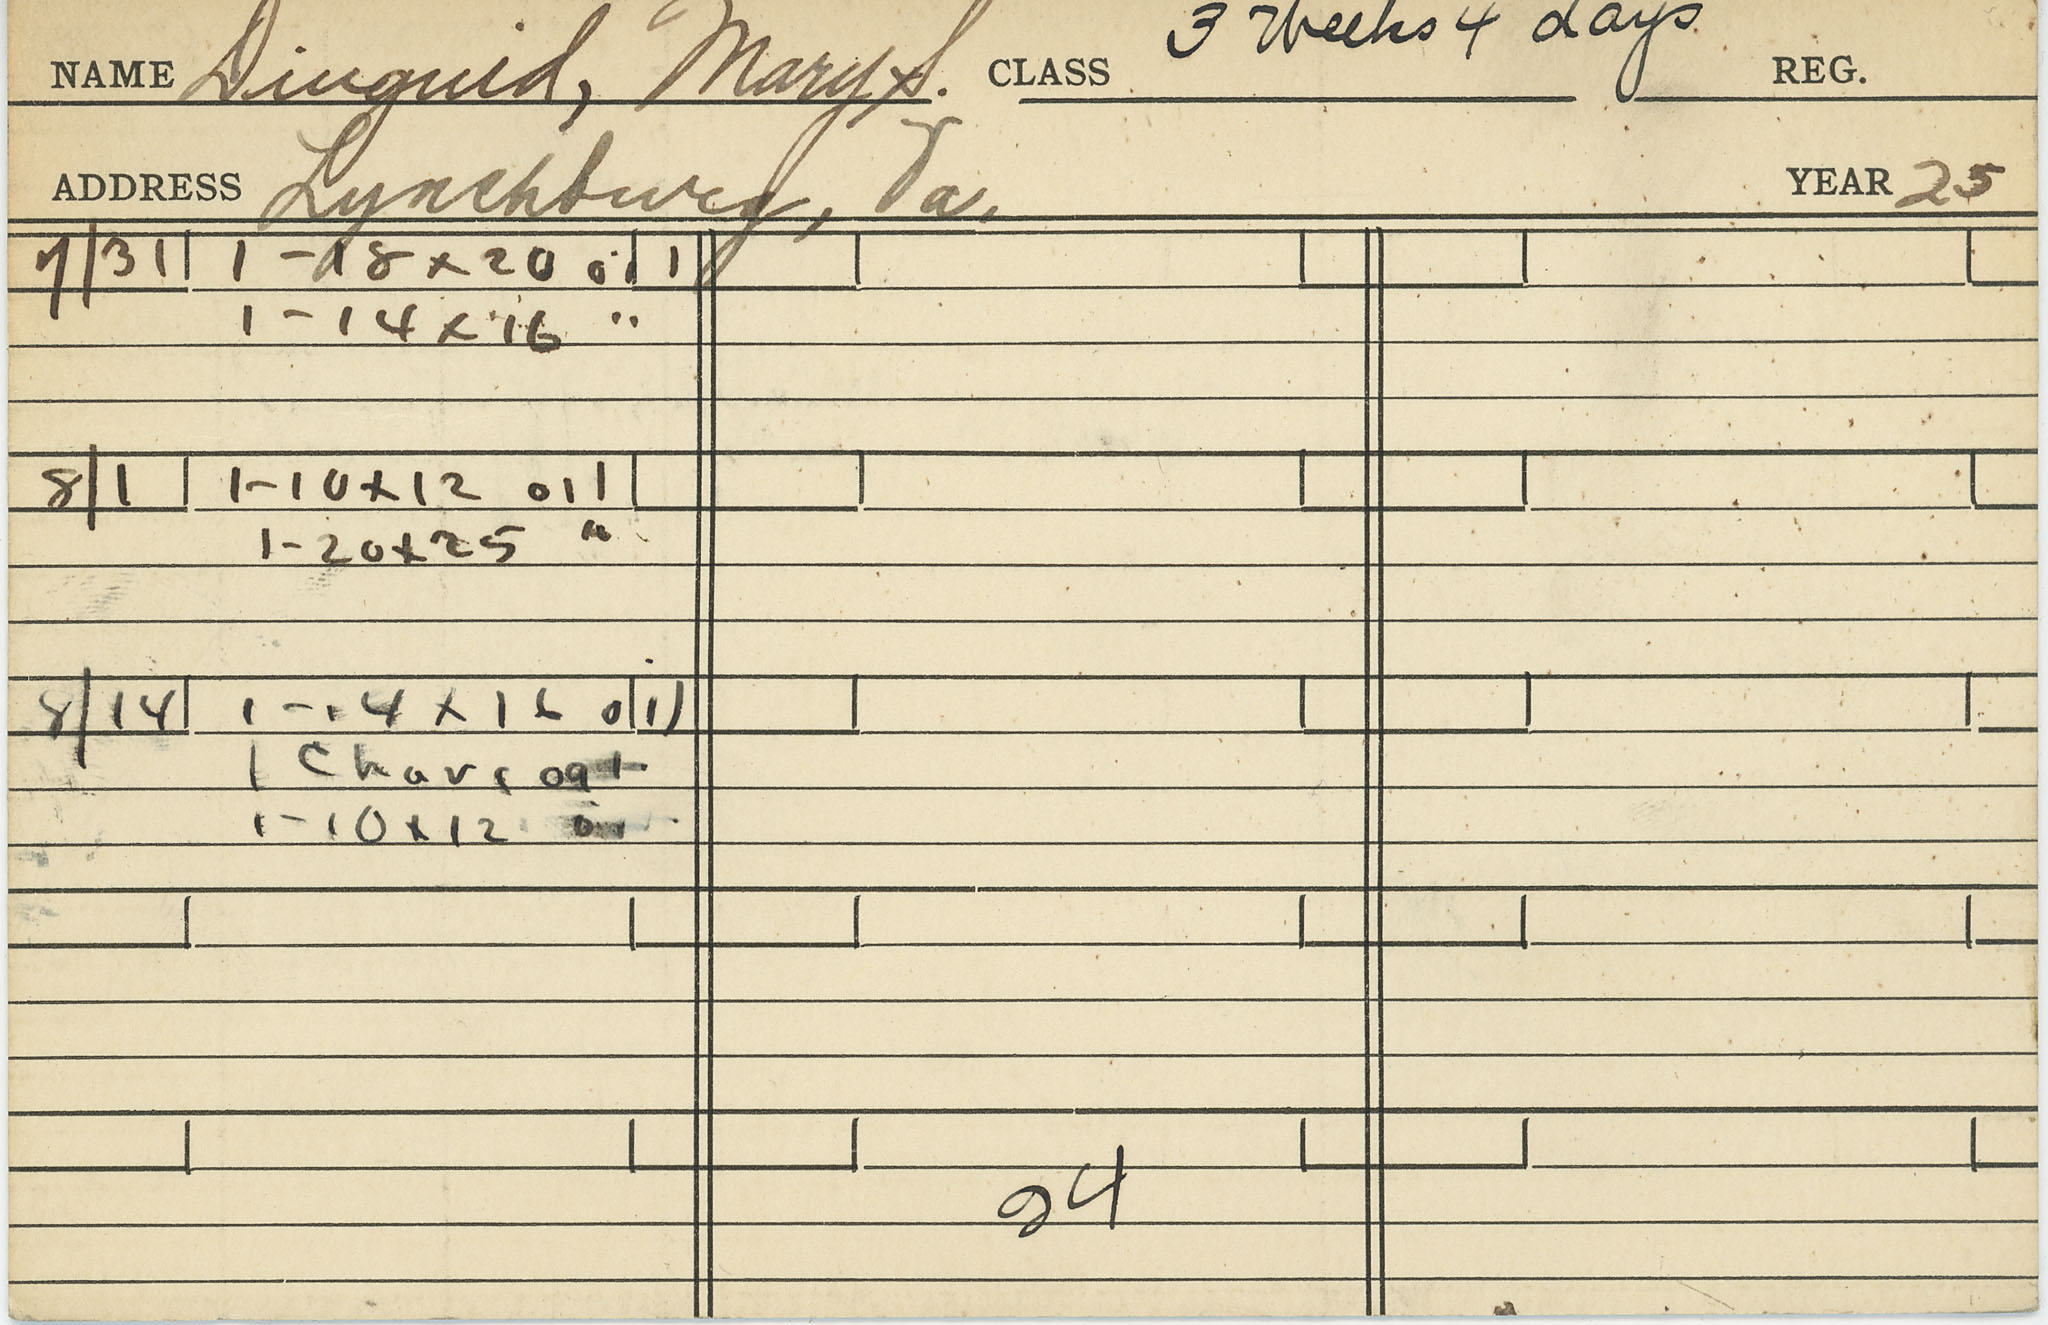 3 Weeks 4 days
NAME Diuguid, Mary S. CLASS REG.
ADDRESS Lynchburg, Va. YEAR 25
7/31 1-18x20 oil
1-14x16 "
8/1 1-10x12 oil
1-20x25 "
8/14 1-14x16 oil
1
1-10x12
24